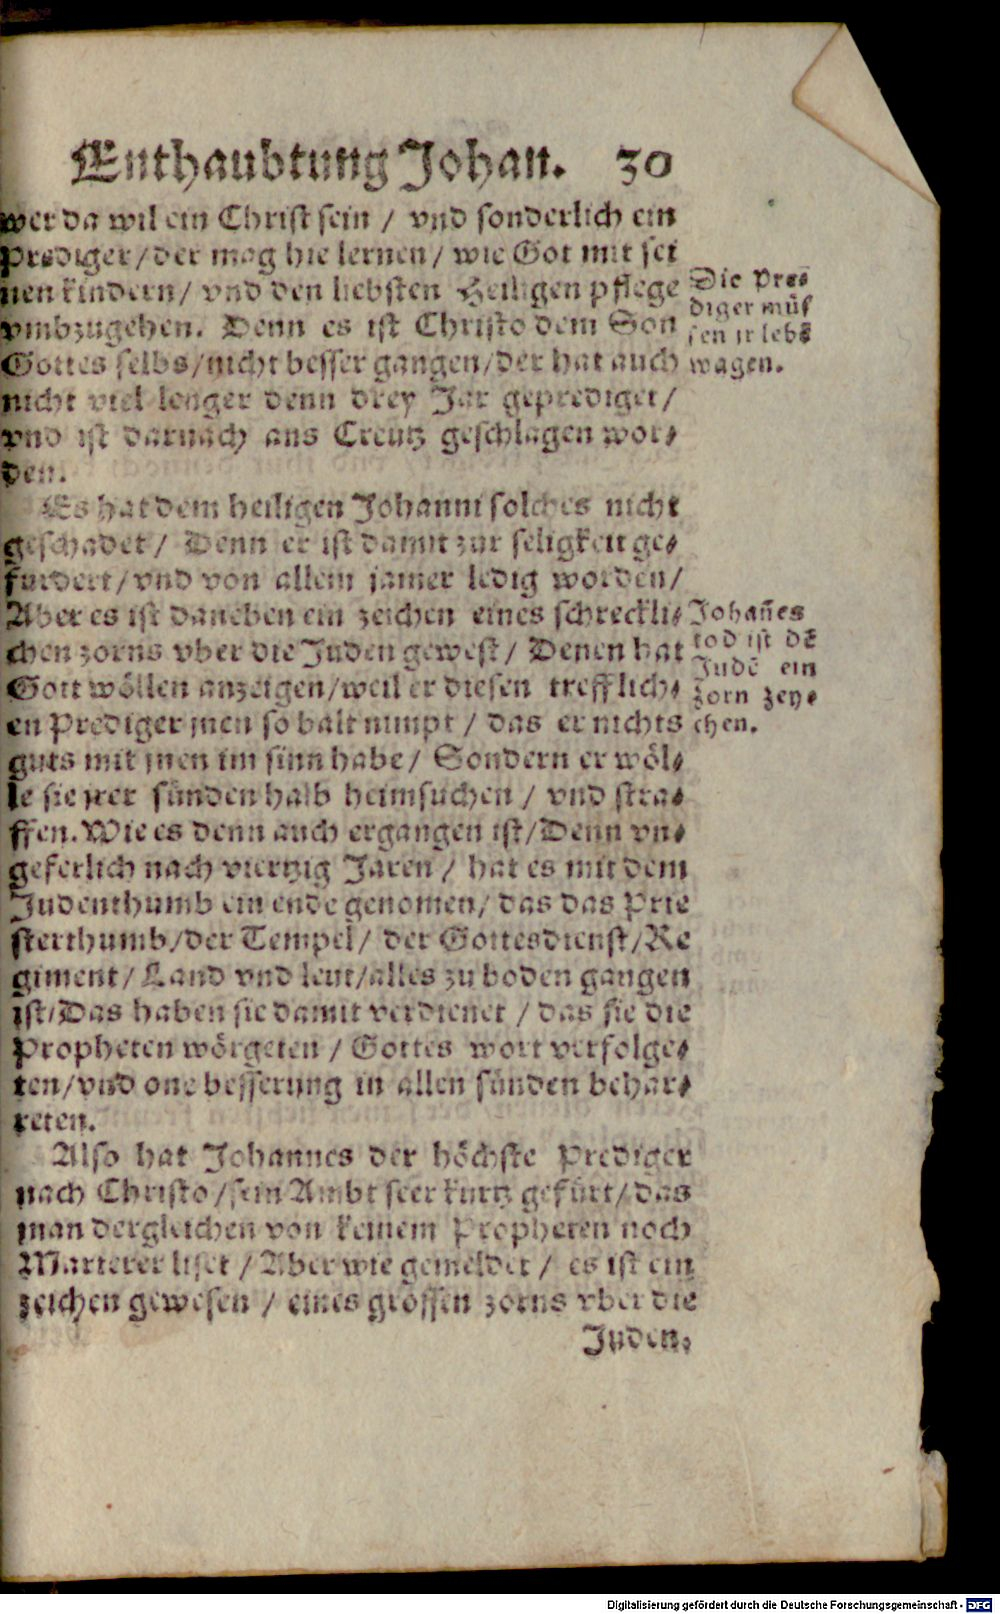 Enthaubtung Johan. 30
wer da wil ein Christ sein / vnd sonderlich ein
Prediger / der mag hie lernen / wie Got mit sei
nen kindern / vnd den liebsten Heiligen pflege
vmbzugehen. Denn es ist Christo dem Son
Gottes selbs / nicht besser gangen / der hat auch
nicht viel lenger denn drey Jar geprediget /
vnd ist darnach ans Creutz geschlagen wor⸗
den.
Die Pre⸗
diger müs
sen ir lebē
wagen.
Es hat dem heiligen Johanni solches nicht
geschadet / Denn er ist damit zur seligkeit ge⸗
furdert / vnd von allem jamer ledig worden /
Aber es ist daneben ein zeichen eines schreckli⸗
chen zorns vber die Juden gewest / Denen hat
Gott wöllen anzeigen / weil er diesen trefflich⸗
en Prediger jnen so balt nimpt / das er nichts
guts mit jnen im sinn habe / Sondern er wöl⸗
le sie jrer sünden halb heimsuchen / vnd stra⸗
ffen. Wie es denn auch ergangen ist / Denn vn⸗
geferlich nach viertzig Jaren / hat es mit dem
Judenthumb ein ende genomen / das das Prie
sterthumb / der Tempel / der Gottesdienst / Re
giment / Land vnd leut / alles zu boden gangen
ist / Das haben sie damit verdienet / das sie die
Propheten wörgeten / Gottes wort verfolge⸗
ten / vnd one besserung in allen sünden behar⸗
reten.
Johan̄es
tod ist dē
Judē ein
zorn zey⸗
chen.
Also hat Johannes der höchste Prediger
nach Christo / sein Ambt seer kurtz gefürt / das
man dergleichen von keinem Propheten noch
Marterer liset / Aber wie gemeldet / es ist ein
zeichen gewesen / eines grossen zorns vber die
Juden.
Digitalisierung gefördert durch die Deutsche Forschungsgemeinschaft - DFG